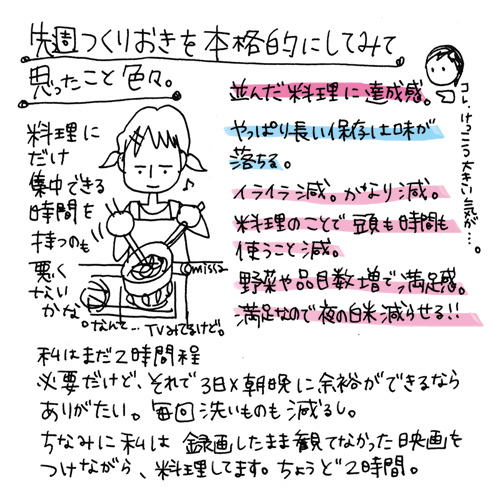 先週つくりおきを本格的にしてみて
思ったこと色々。
並んだ料理に達成感。
やっぱり長い保存は味が
落ちる。
イライラ減。かなり減。
料理のことで頭も時間も
使うこと減。
野菜や品目数増で満足感。
満足なので夜の白米減らせる!!
コレ、けっこう大きい気が…。
料理に
だけ
集中できる
時間を
持つのも
悪く
ない
かな。
♪
©missa
なんて…TVみてるけど。
私はまだ2時間程
必要だけど、それで3日×朝晩に余裕ができるなら
ありがたい。毎回洗いものも減るし。
ちなみに私は録画したまま観てなかった映画を
つけながら、料理してます。ちょうど2時間。